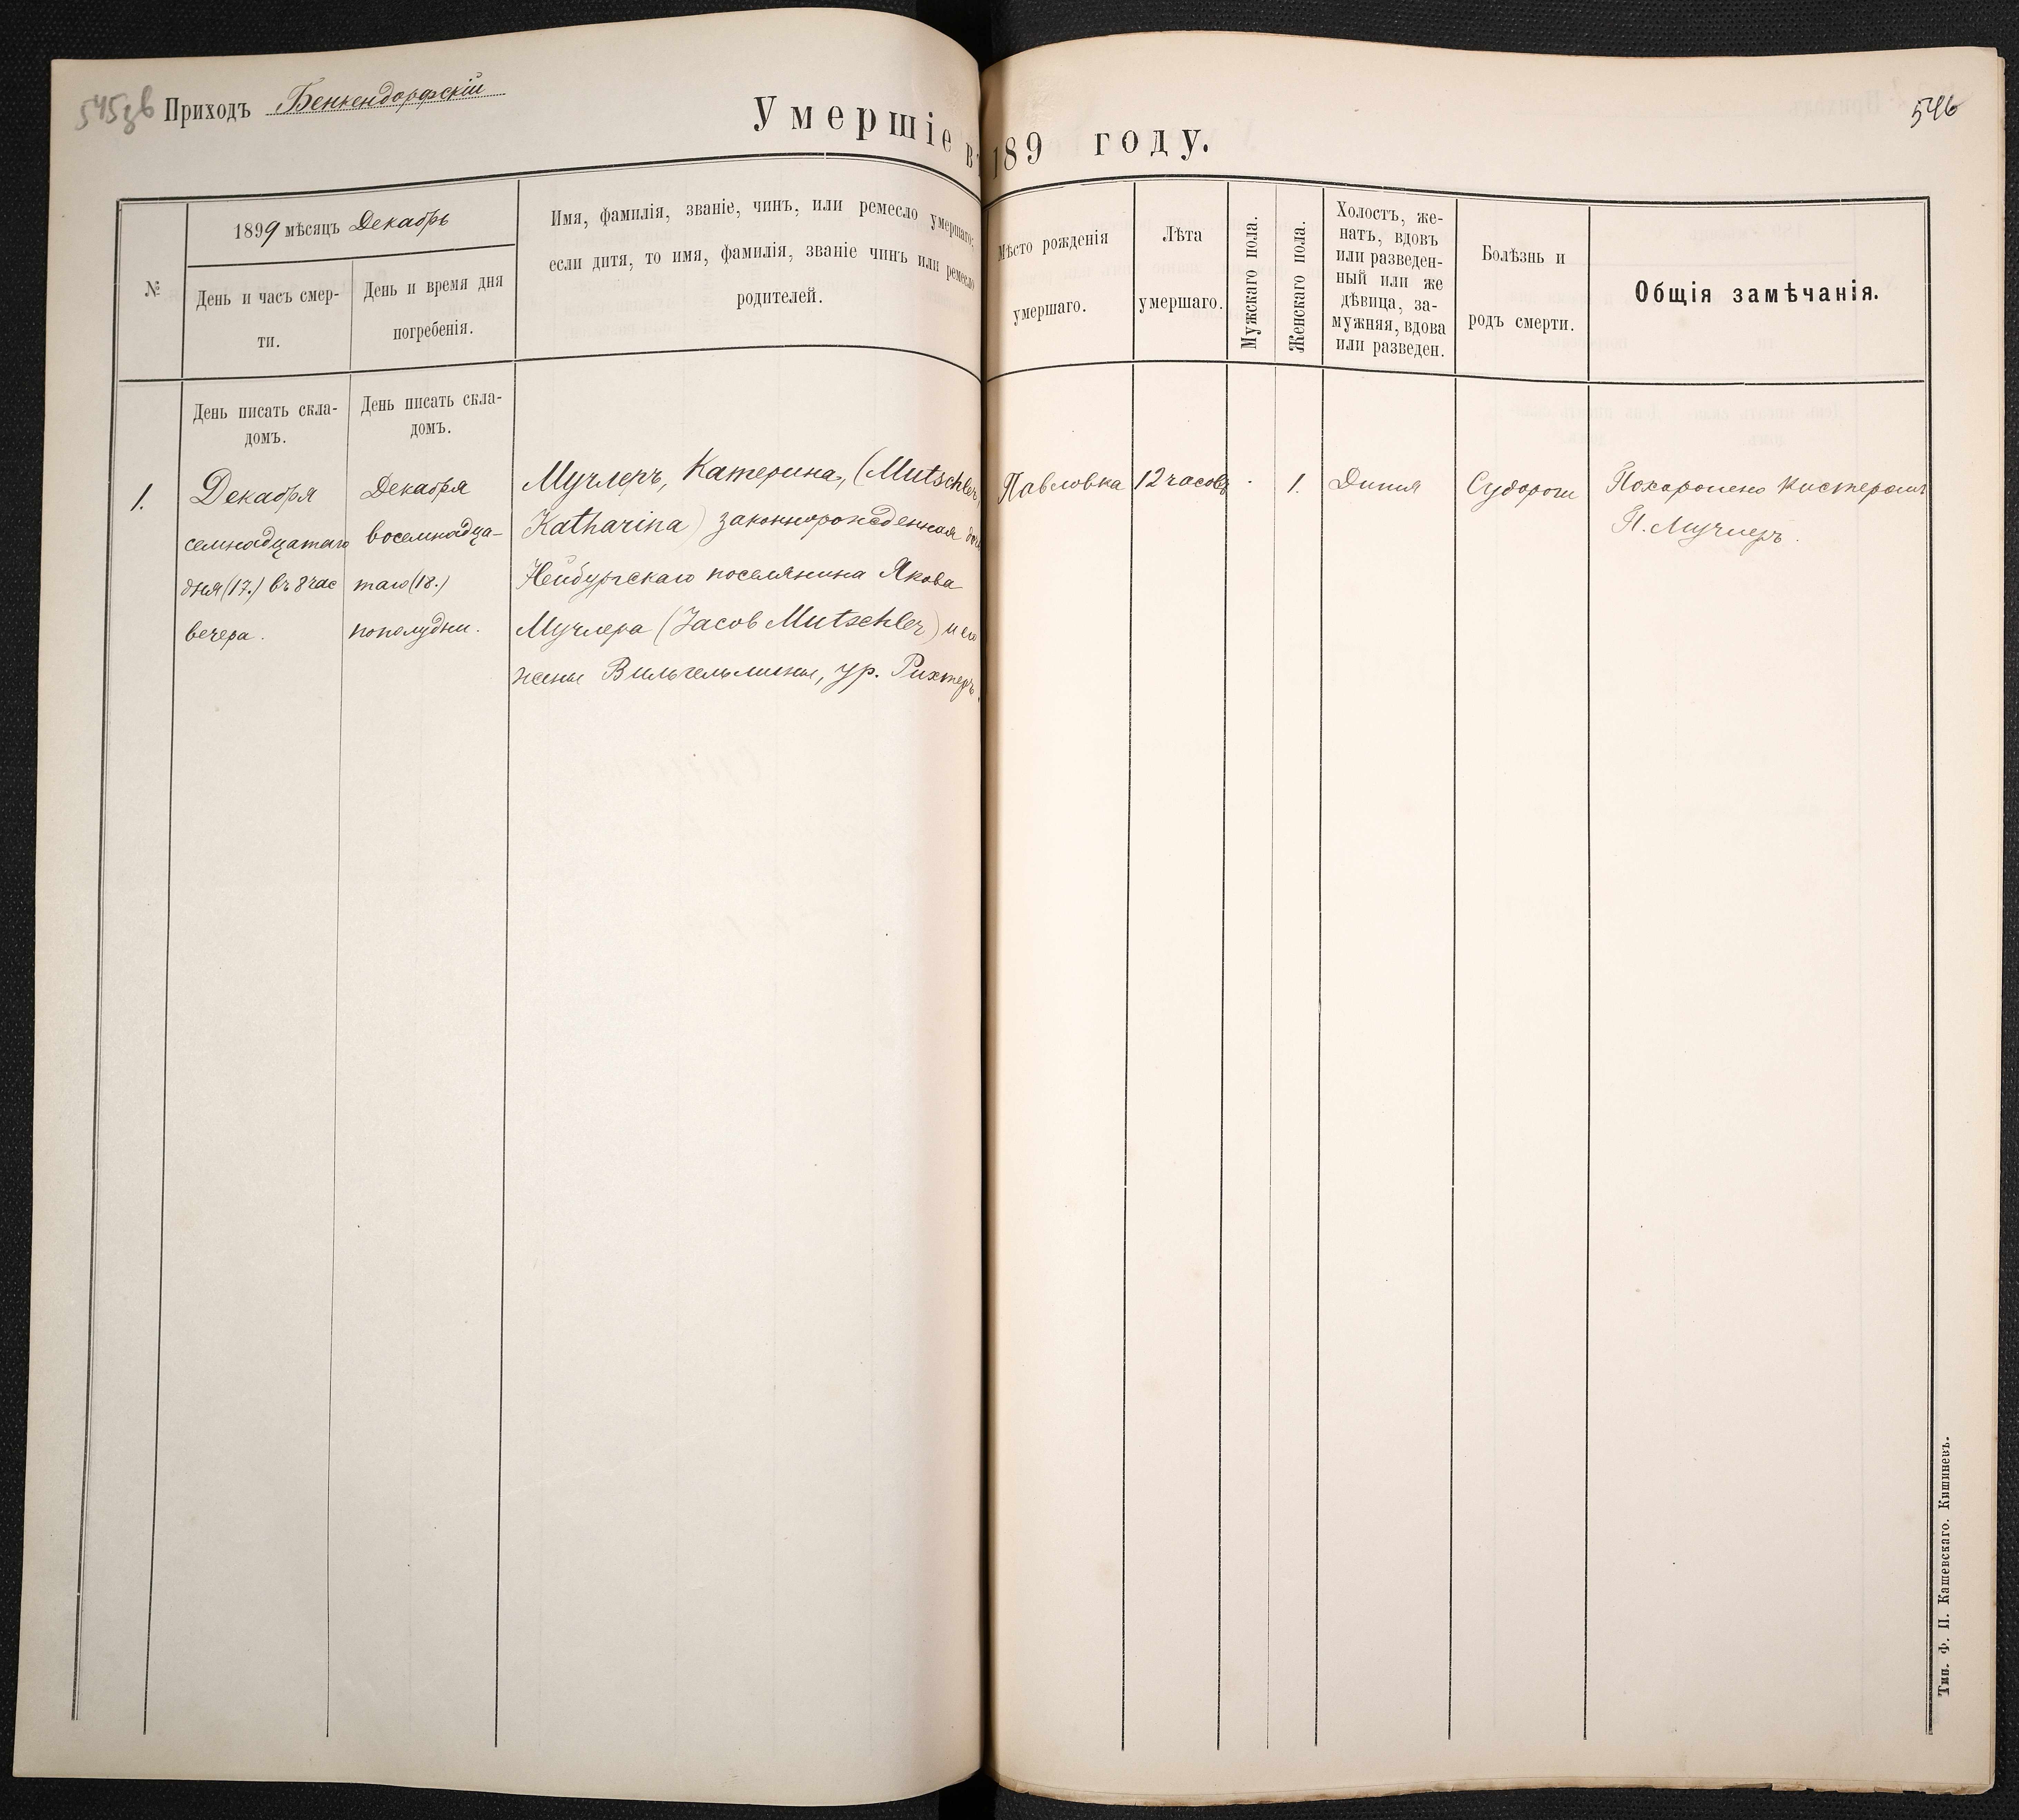 545зв Приходъ Бенкендорфскій
Умершіе в 189 году.
546
№
1899 мѣсяцъ Декабрь
День и часъ смер-
ти.
День и время дня
погребенія.
Имя, фамилія, званіе, чинъ, или ремесло умершаго;
если дитя, то имя, фамилія, званіе чинъ или ремесло
родителей.
Мѣсто рожденія
умершаго.
Лѣта
умершаго.
Мужскаго пола.
Женскаго пола.
Холостъ, же-
натъ, вдовъ
или разведен-
ный или же
дѣвица, за-
мужняя, вдова
или разведен.
Болѣзнь и
родъ смерти.
Общія замѣчанія.
День писать скла-
домъ.
День писать скла-
домъ.
1.
Декабря
семнадцатаго
дня (17.) въ 8 час
вечера.
Декабря
восемнадца-
таго (18.)
пополудни.
Мучлеръ, Катерина, (Mutschler,
Katharina) законнорожденная
Нейбургскаго поселянина Якова
Мучлера (Jacob Mutschler) и его
жены Вильгельмины, ур. Рихтеръ.
Павловка
12 часовъ
.
1.
Дитя
Судороги
Похоронено кистеромъ
П. Мучлеръ.
Тип. Ф. П. Кашевскаго. Кишиневъ.